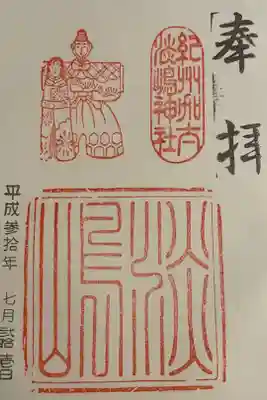 奉拝
紀州加太
淡嶋神社
淡嶋
平成参拾年 七月 壹日